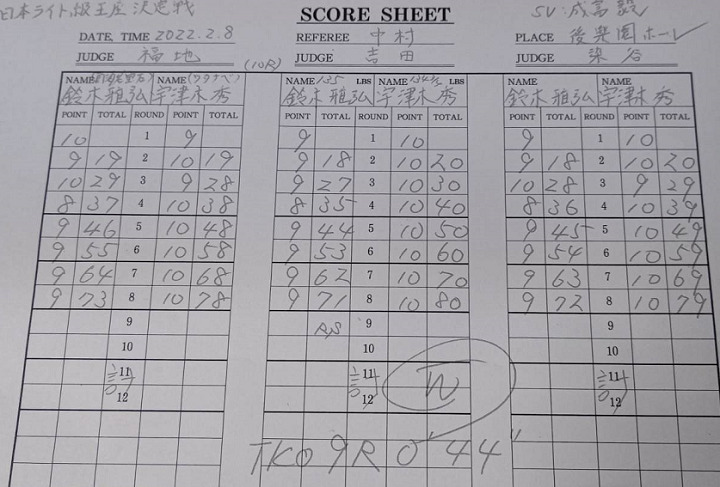 日本ライト級王座決定戦 SCORE SHEET SV:成富毅
DATE, TIME 2022.2.8 REFEREE 中村 PLACE 後楽園ホール
JUDGE 福地 (10R) JUDGE 吉田 JUDGE 染谷
NAME NAME (ワタナベ) NAME 135 LBS NAME 134 1/2 LBS NAME NAME
鈴木雅弘 宇津木秀 鈴木雅弘 宇津木秀 鈴木雅弘 宇津木秀
POINT TOTAL ROUND POINT TOTAL POINT TOTAL ROUND POINT TOTAL POINT TOTAL ROUND POINT TOTAL
10 1 9 9 1 10 9 1 10
9 19 2 10 19 9 18 2 10 20 9 18 2 10 20
10 29 3 9 28 9 27 3 10 30 10 28 3 9 29
8 37 4 10 38 8 35 4 10 40 8 36 4 10 39
9 46 5 10 48 9 44 5 10 50 9 45 5 10 49
9 55 6 10 58 9 53 6 10 60 9 54 6 10 59
9 64 7 10 68 9 62 7 10 70 9 63 7 10 69
9 73 8 10 78 9 71 8 10 80 9 72 8 10 79
9 9 9
10 10 10
11 11 W 11
12 12 12
TKO 9R 0'44"